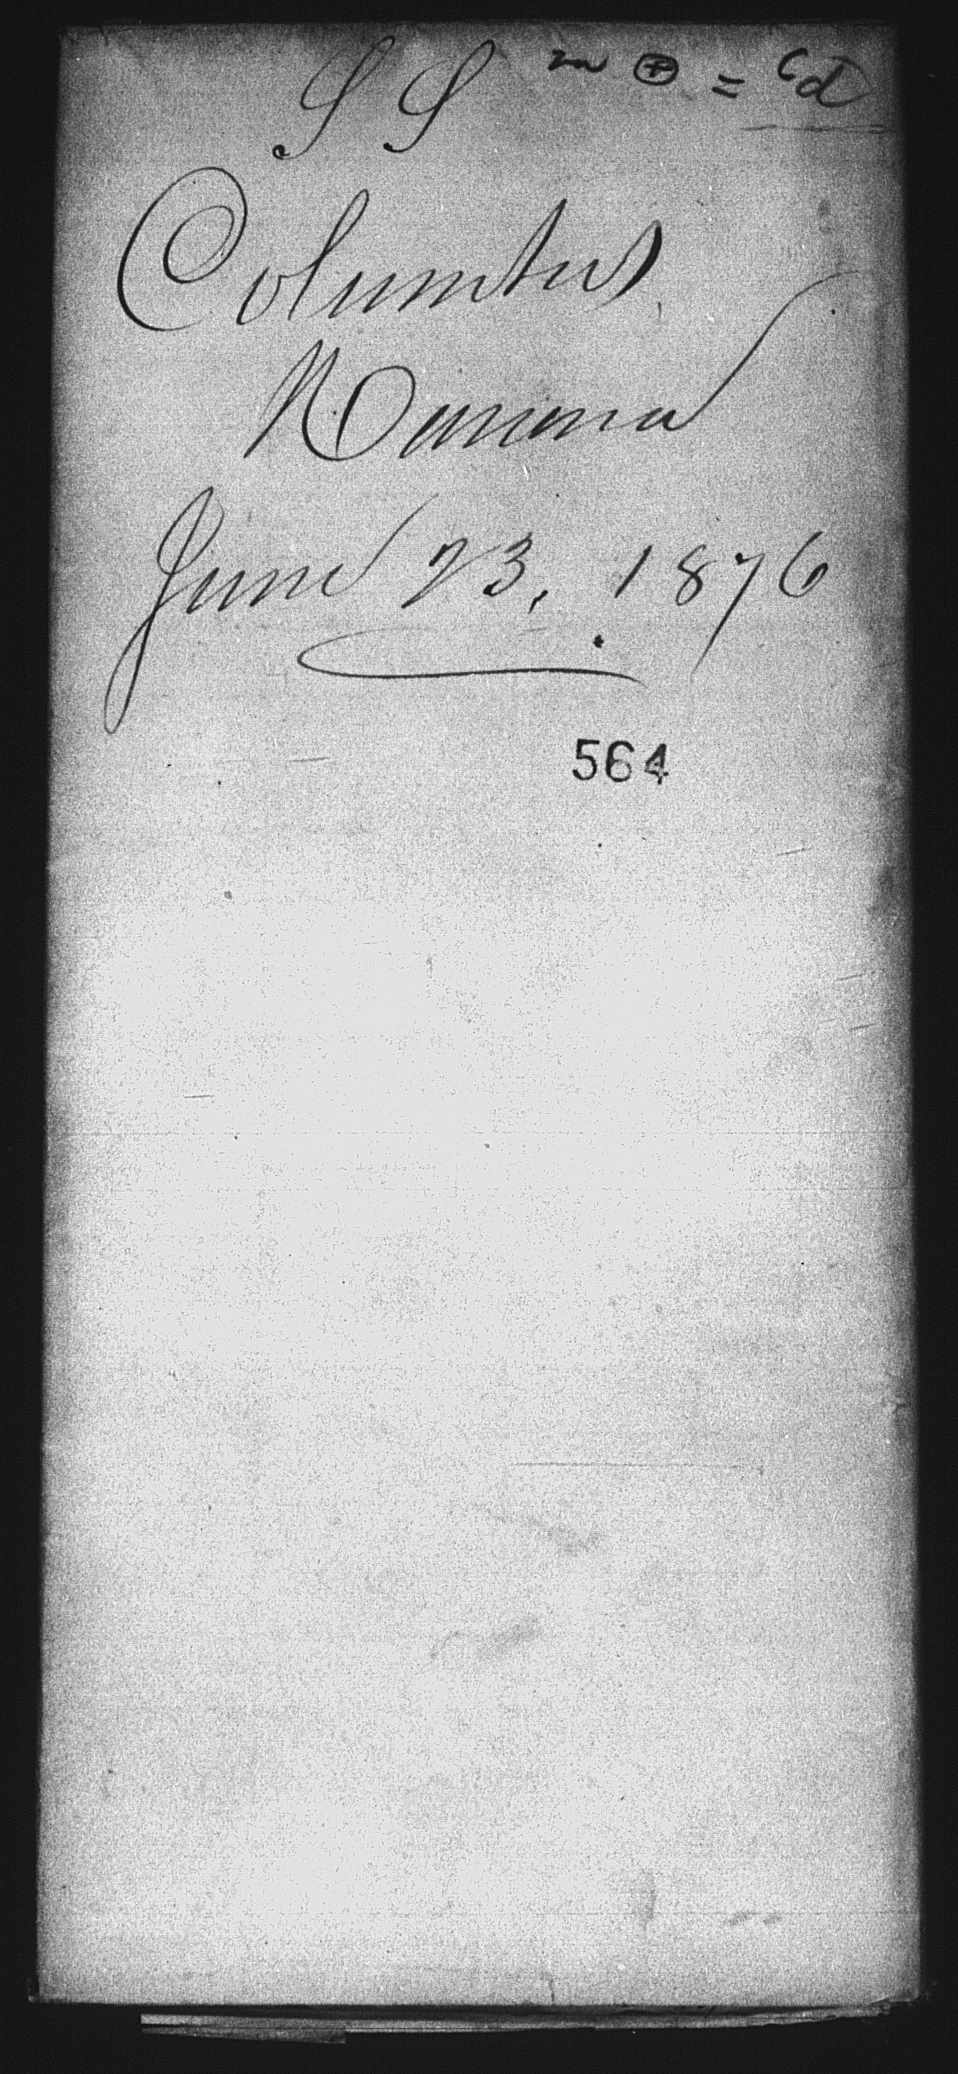 S S
Columbus
Havana
June 23, 1876
564